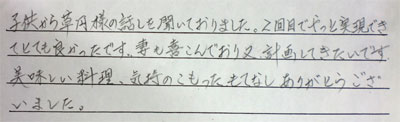 子供から
様の話しを聞いておりました。2回目でやっと実現でき
てとても良かったです。妻も喜こんでおり又、計画してきたいです
美味しい料理、気持のこもったもてなしありがとうござ
いました。